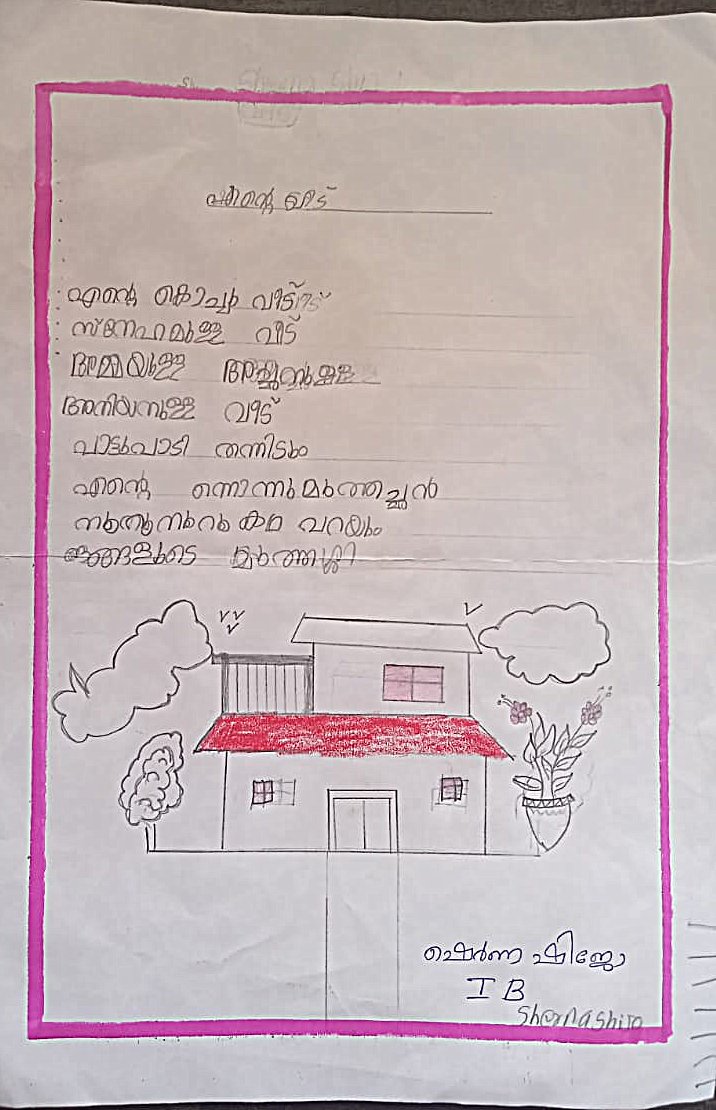 എന്റെ വീട്
എന്റെ കൊച്ചു വീട്
സ്നേഹമുള്ള വീട്
അമ്മയുള്ള അച്ഛനുള്ള
അനിയനുള്ള വീട്
പാട്ടുപാടി തന്നിടും
എന്റെ പൊന്നുമുത്തച്ഛൻ
നൂറുനൂറു കഥ പറയും
ഞങ്ങളുടെ മുത്തശ്ശി
ഷെർണ ഷിജോ
I B